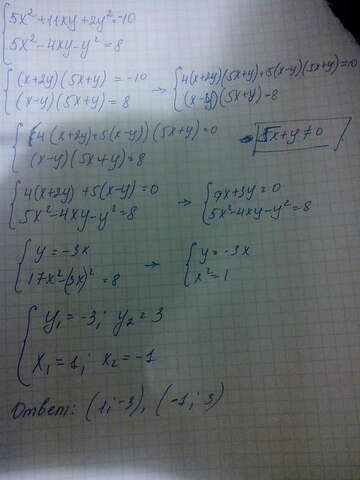 5x²+11xy+2y²=-10
5x²-4xy-y²=8
(x+2y)(5x+y)=-10 → 4(x+2y)(5x+y)+5(x-y)(5x+y)=0
(x-y)(5x+y)=8 (x-y)(5x+y)=8
(4(x+2y)+5(x-y))(5x+y)=0 5x+y≠0
(x-y)(5x+y)=8
4(x+2y)+5(x-y)=0 → 9x+3y=0
5x²-4xy-y²=8 5x²-4xy-y²=8
y=-3x → y=-3x
17x²-(3x)²=8 x²=1
y₁=-3; y₂=3
x₁=1; x₂=-1
Ответ: (1;-3), (-1;3)